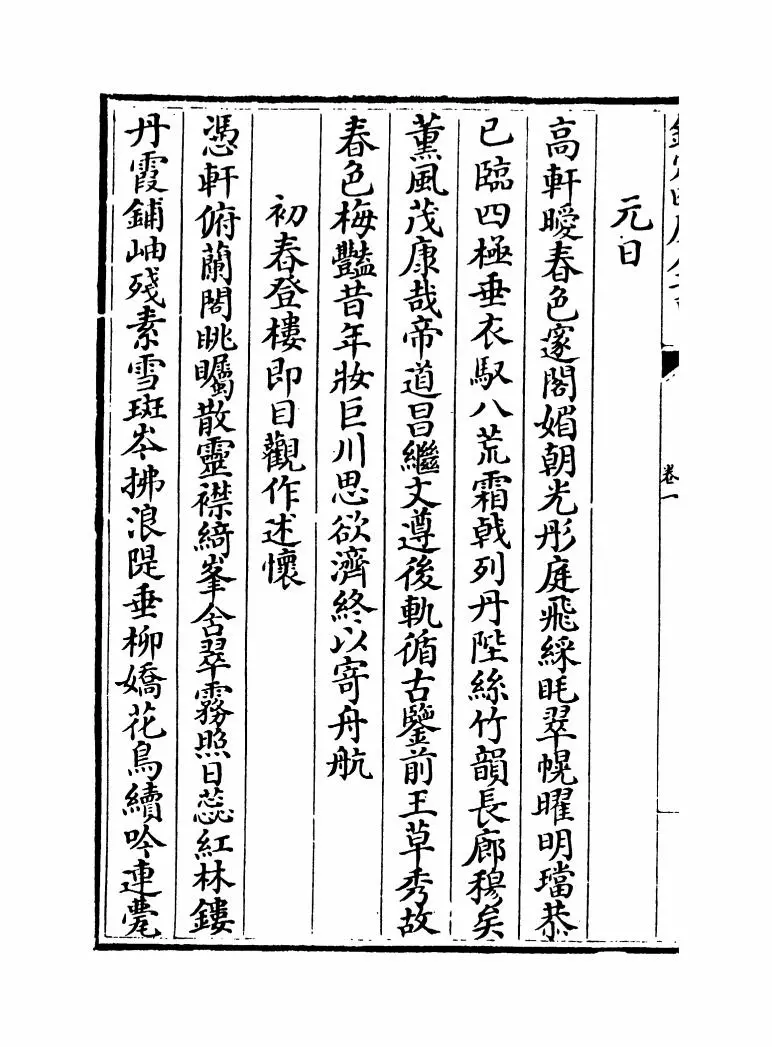 卷一
元日
高軒曖春色邃閣媚朝光彤庭飛綵眊翠幌曜明璫恭
已臨四極垂衣馭八荒霜戟列丹陛絲竹韻長廊穆矣
薰風茂康哉帝道昌繼文遵後軌循古鑒前王草秀故
春色梅豔昔年妝巨川思欲濟終以寄舟航
初春登樓即目觀作述懷
憑軒俯蘭閣眺矚散靈襟綺峯含翠霧照日蕊紅林鏤
丹霞鋪岫殘素雪斑岑拂浪隄垂柳嬌花鳥續吟連甍